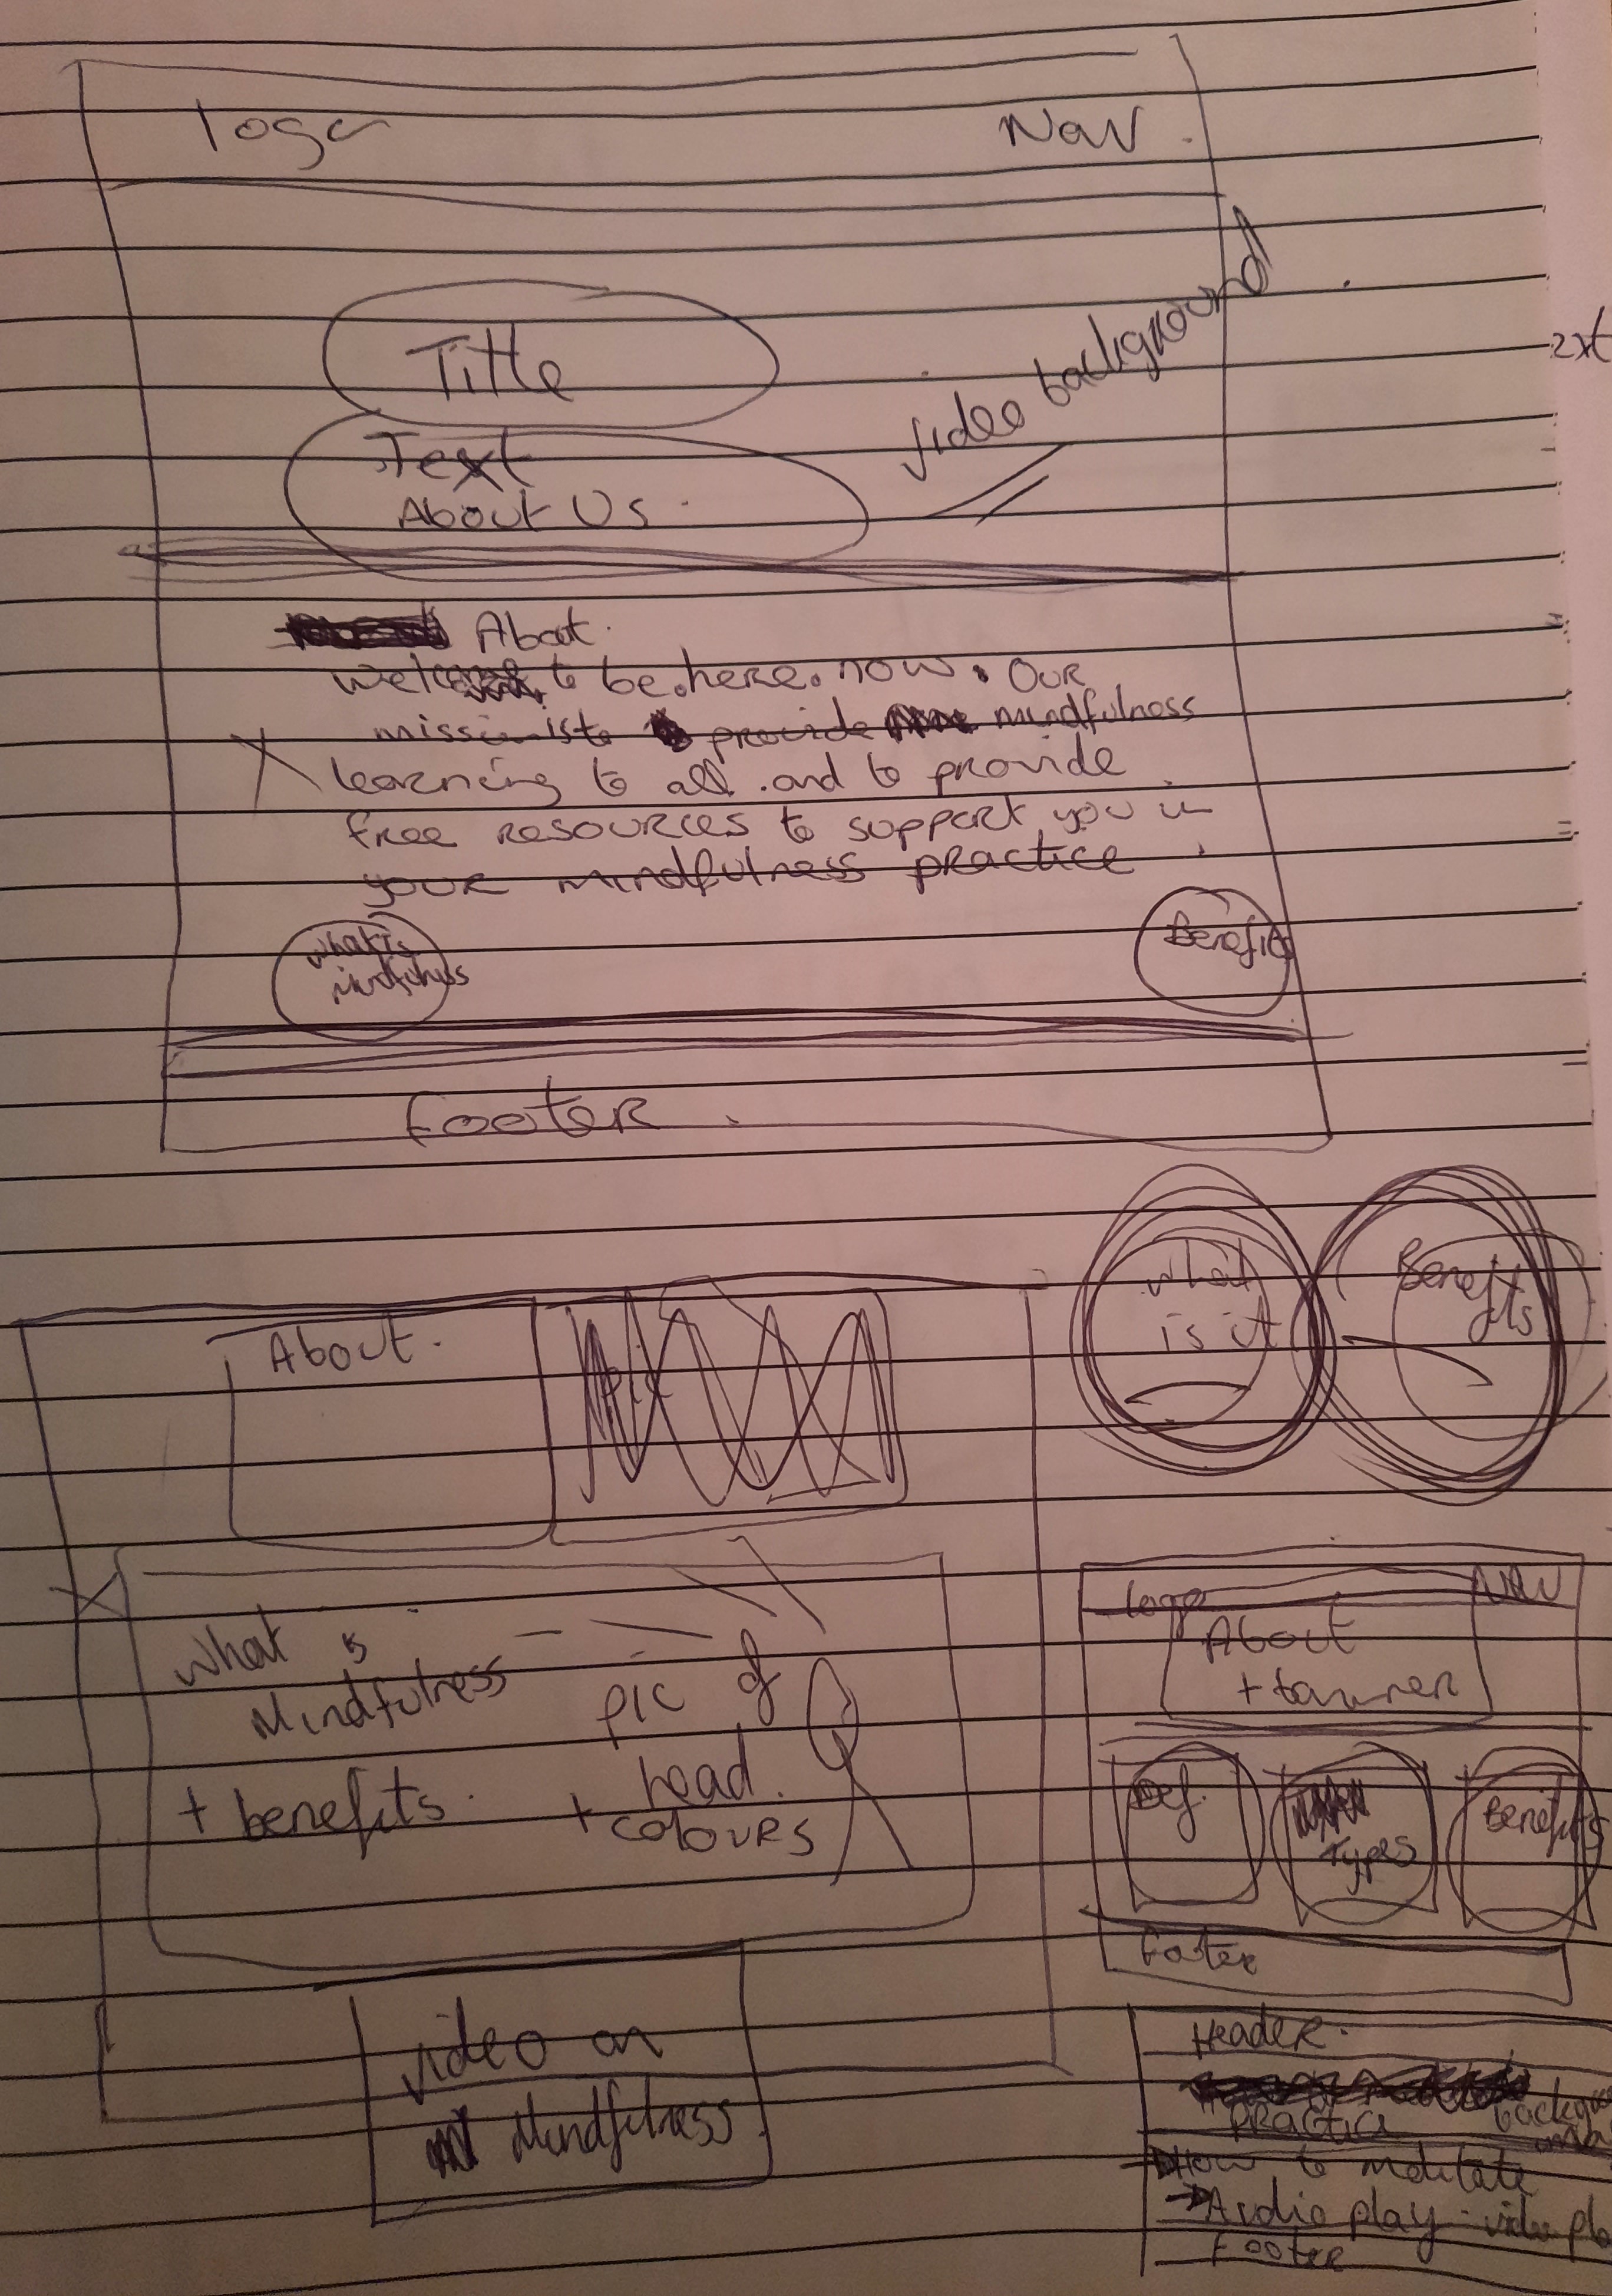 logo
Nav.
Title
Text
About Us.
video background
About.
welcome to be.here.now. Our
mission is to provide mindfulness
learning to all and to provide
free resources to support you in
your mindfulness practice.
what is
Mindfulness
Benefits
Footer.
what
is it
Benefits
About.
Pic
what is
Mindfulness
+ benefits.
pic of
head.
+ colours
video on
Mindfulness
logo
NAV
About
+ banner
Def.
Types
Benefits
Footer
Header.
Practice
How to meditate
Audio play - video
Footer